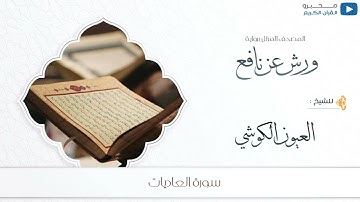 محبرو
القرآن الكريم
المصحف المنزل برواية
ورش عن نافع
للشيخ :
العيون الكوشي
سورة العاديات